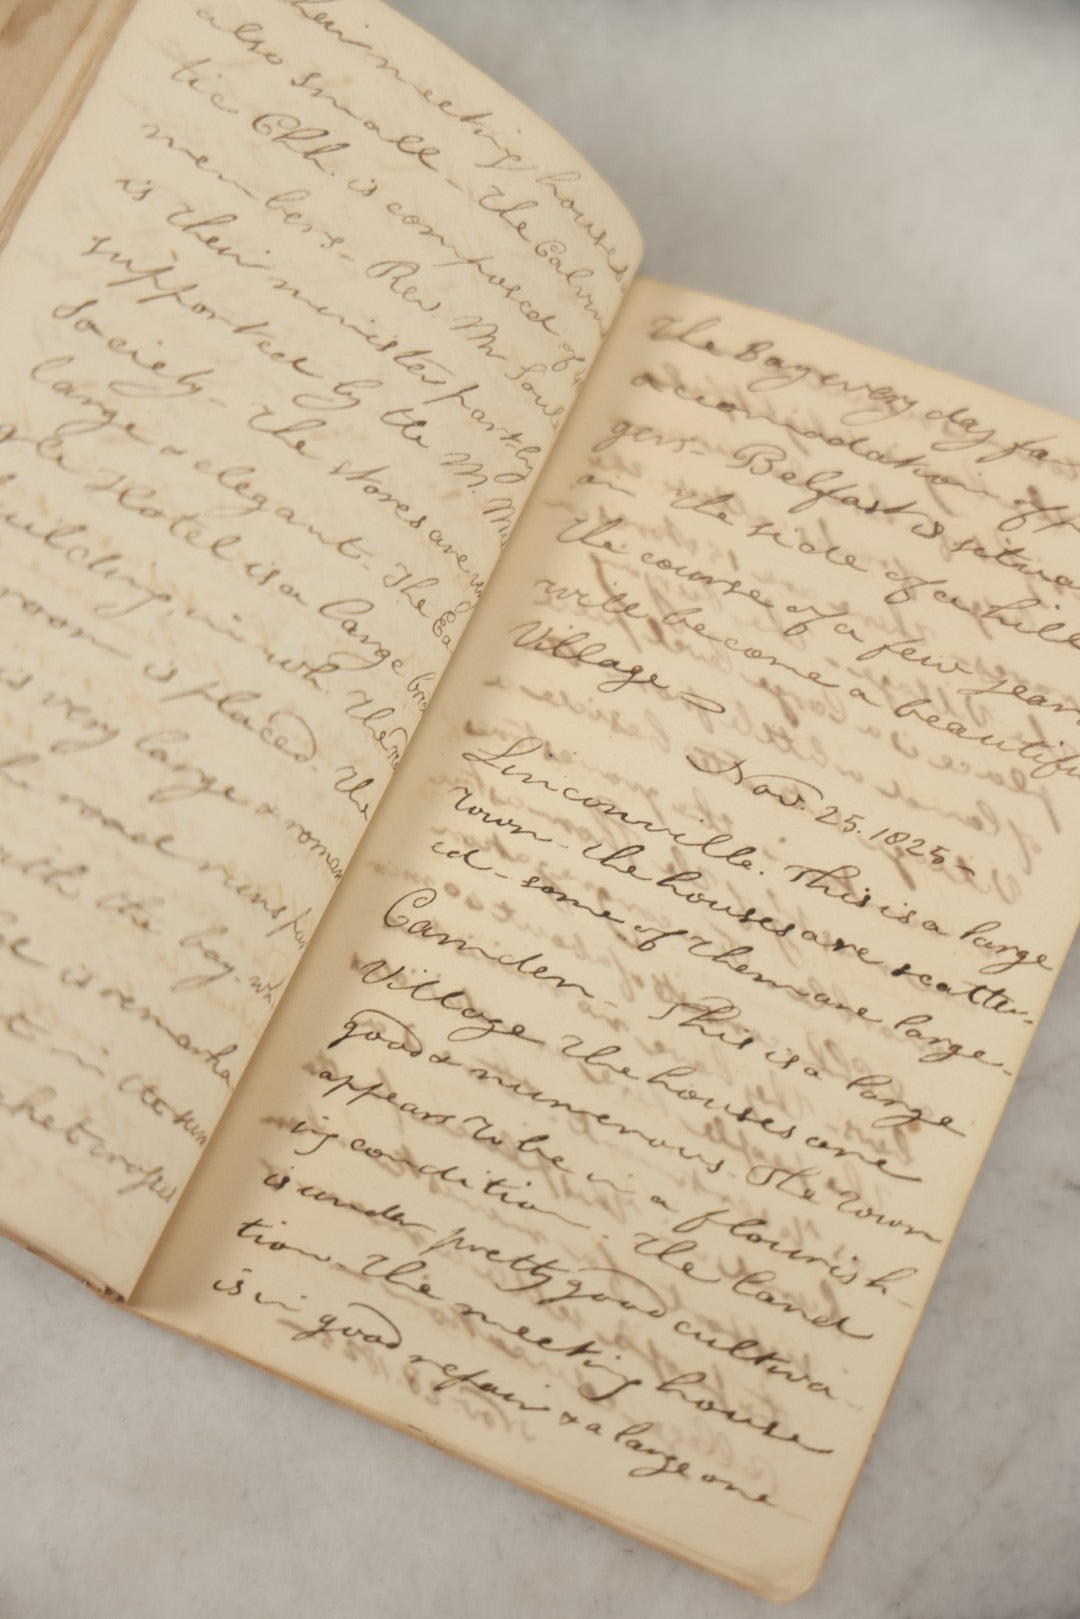 their meeting houses
also small - The Calvinis
tic Chh. is composed of
members - Rev. Mr Soul
is their minister partly
supported by the M. Mis
Society - The stores are
large & elegant - The Ea
gle Hotel is a large bric
uilding, in wh. the
room is placed. The
is very large & roman
he road runs par
with the bay - wh
is remarka
t in the sum
The Bay every day fo
accomodation of p
gers - Belfast is situa
on the side of a hill
the course of a few years
will become a beautifu
Village -
Nov. 25. 1825 -
Linconville. This is a large
town - the houses are scatter-
ed - some of them are large -
Camden - This is a large
Village the houses are
good & numerous. The town
appears to be in a flourish-
ing condition. The land
is under pretty good cultiva-
tion - The meeting house
is in good repair & a large one